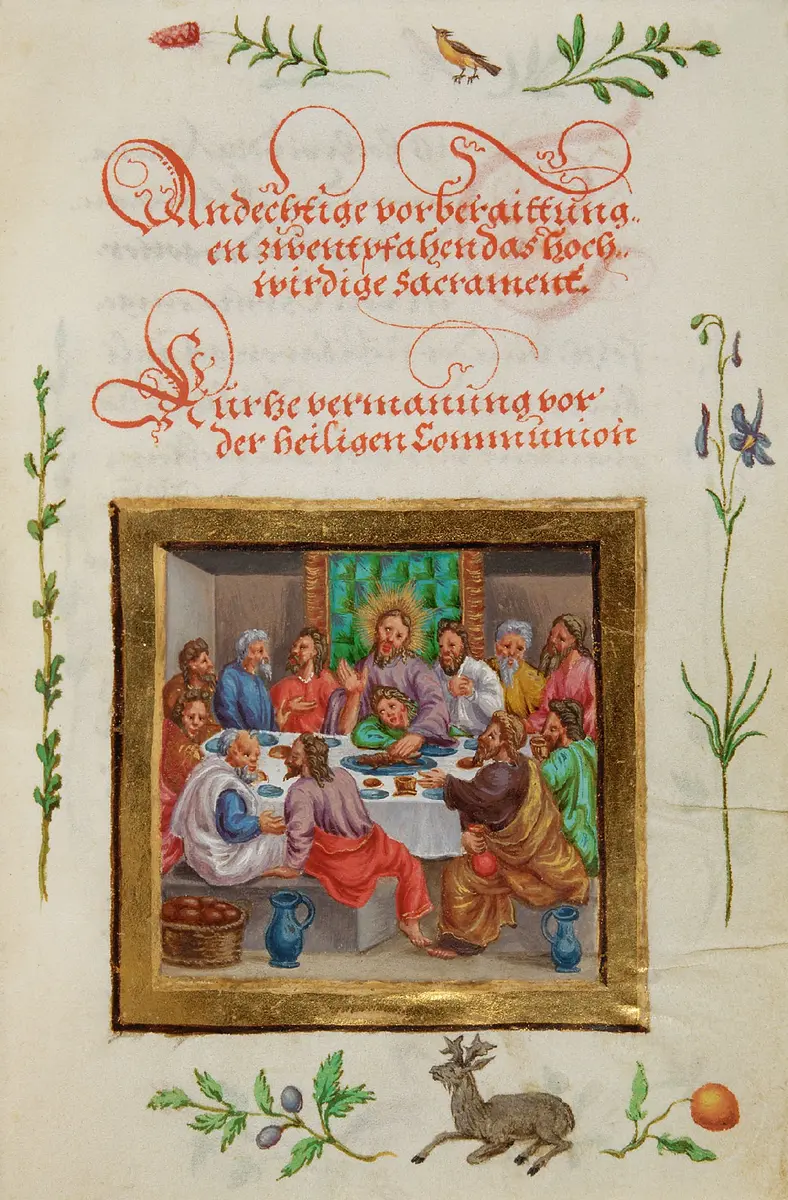 Andechtige vorbergittung..
en zwentpfahen das hoch..
wirdige Sacrament.
Kurtze vermanung vor
der heiligen Communion